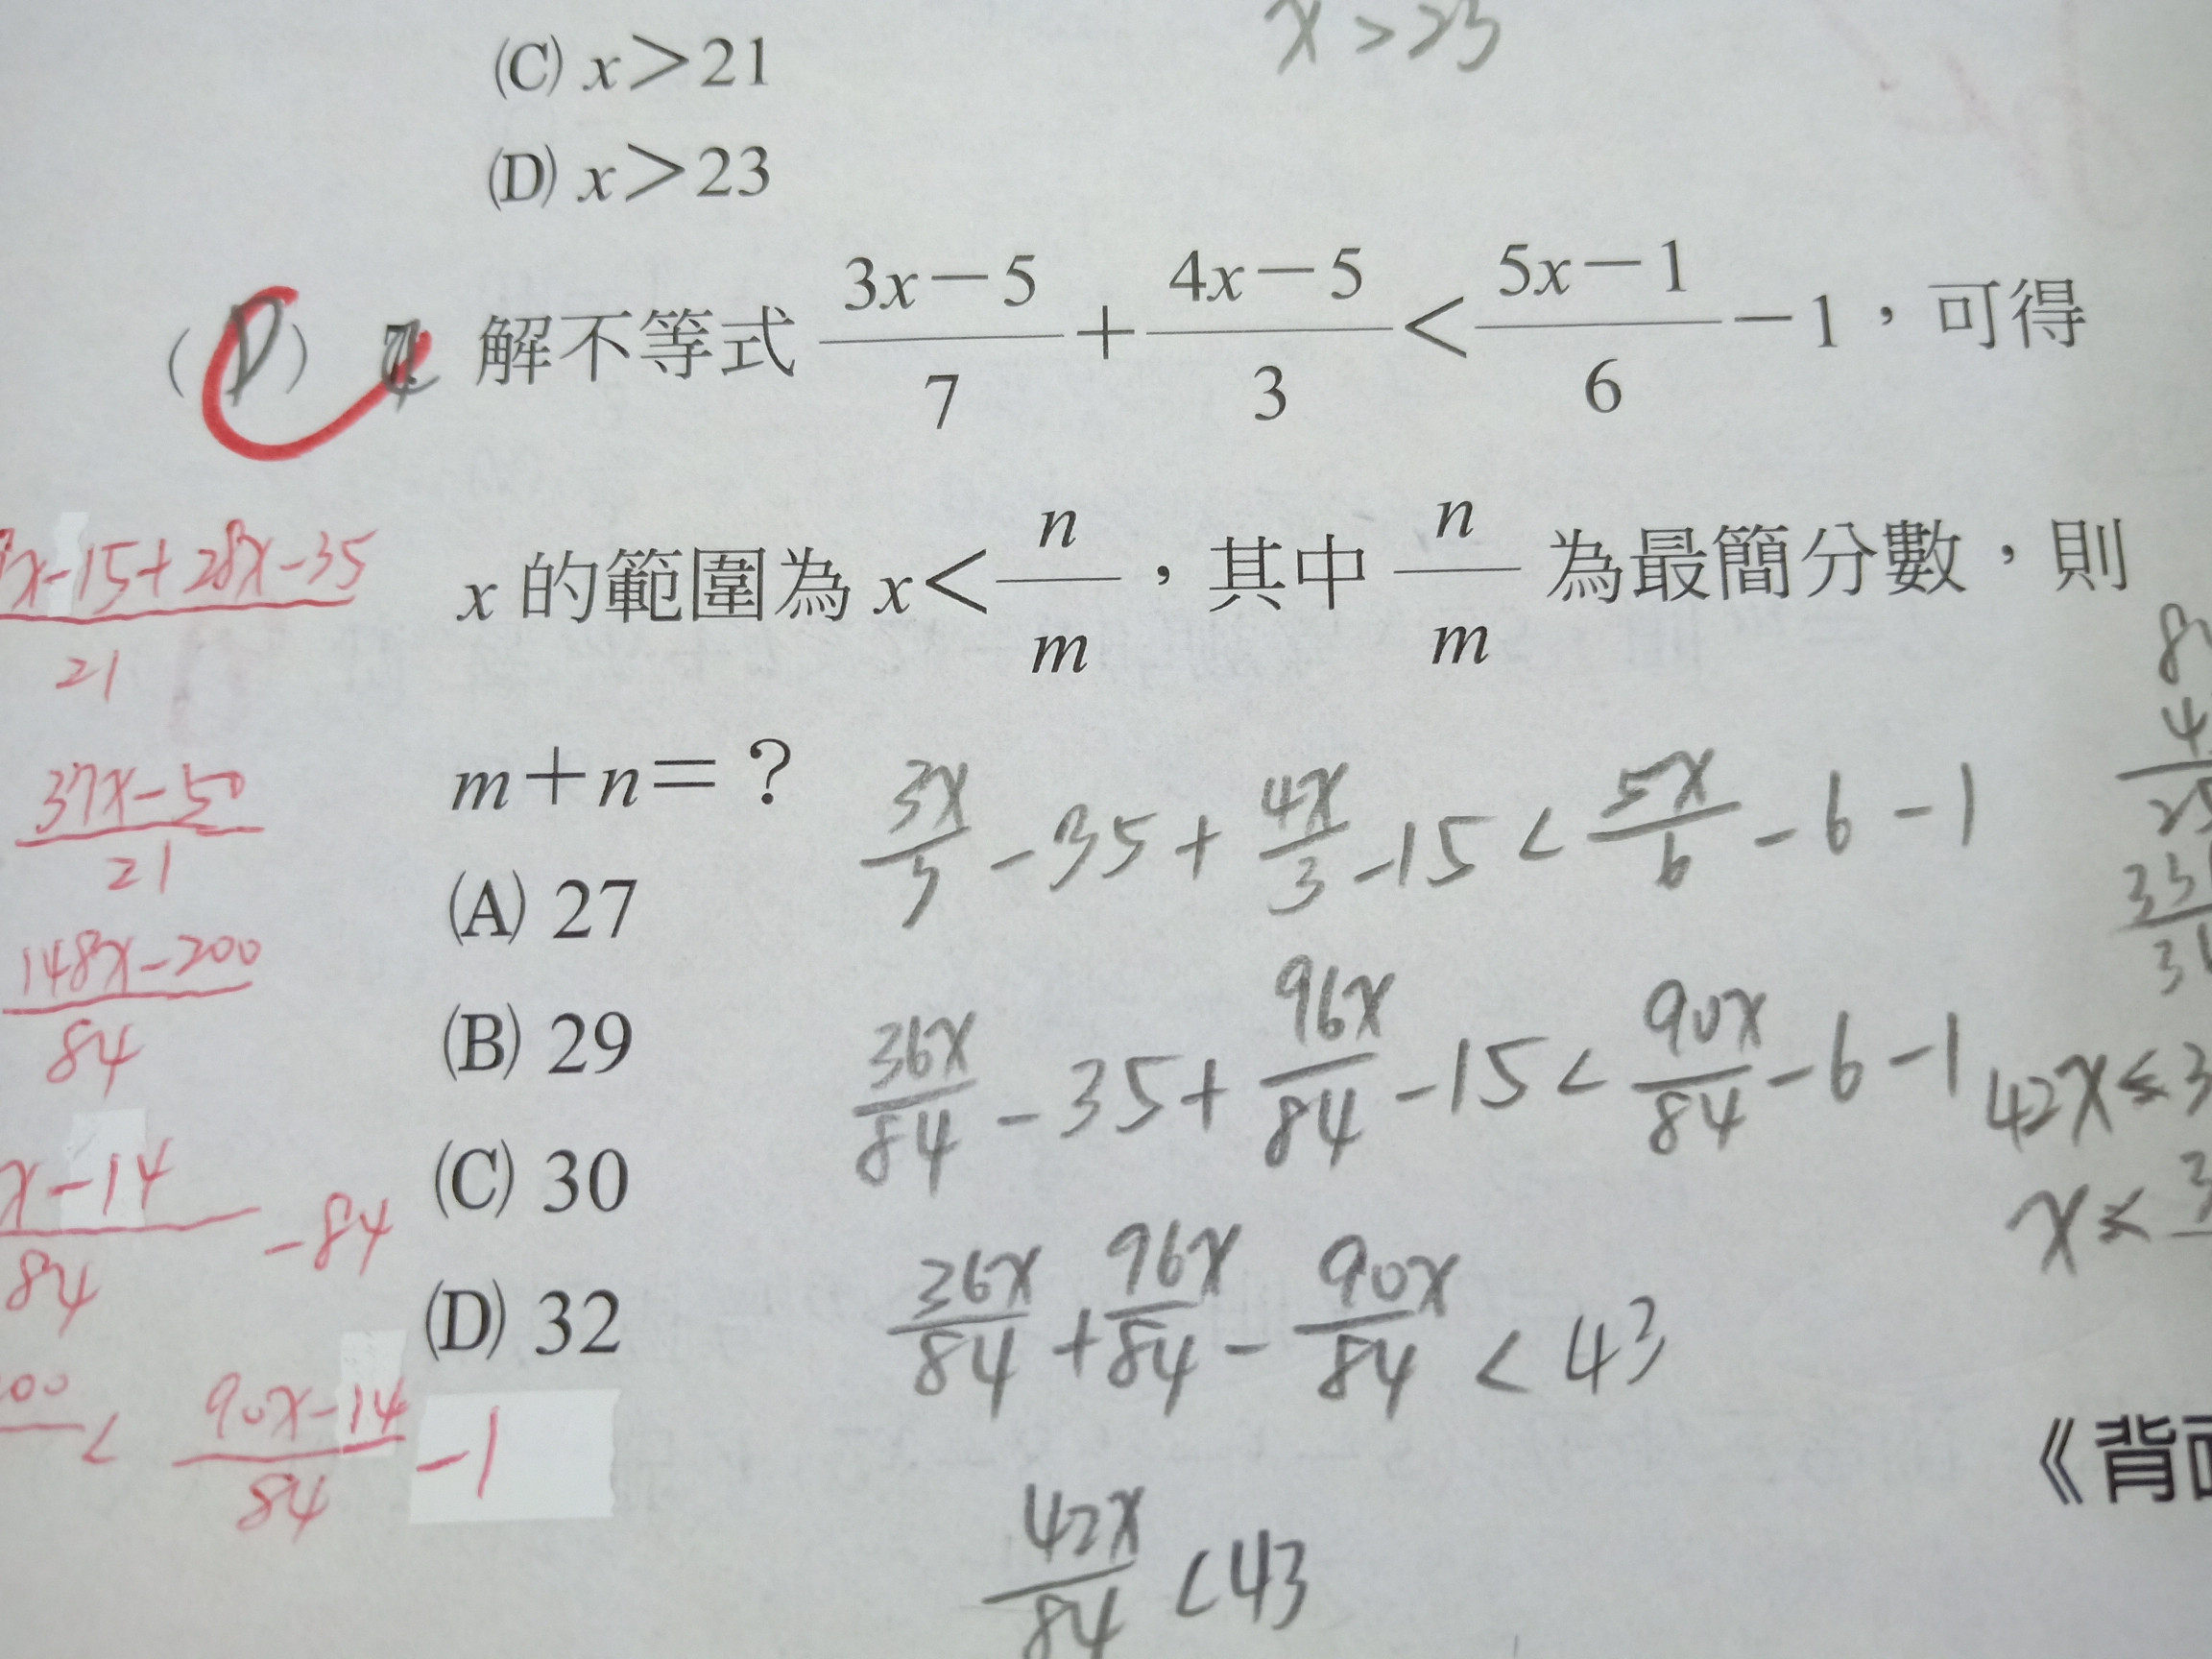 (C) x＞21
x > 23
(D) x＞23
( D ) 4. 解不等式 \frac{3x－5}{7}＋\frac{4x－5}{3}＜\frac{5x－1}{6}－1，可得
x 的範圍為 x＜\frac{n}{m}，其中 \frac{n}{m} 為最簡分數，則
m＋n＝？
(A) 27
(B) 29
(C) 30
(D) 32
x-15+28x-35
21
\frac{37x-50}{21}
\frac{148x-200}{84}
\frac{x-14}{84} -84
00 < \frac{90x-14}{84} -1
-35 + \frac{4x}{3} -15 < \frac{5x}{6} -6 -1
\frac{36x}{84} -35 + \frac{96x}{84} -15 < \frac{90x}{84} -6 -1
\frac{36x}{84} + \frac{96x}{84} - \frac{90x}{84} < 43
\frac{42x}{84} < 43
42x < 3
x <
《背